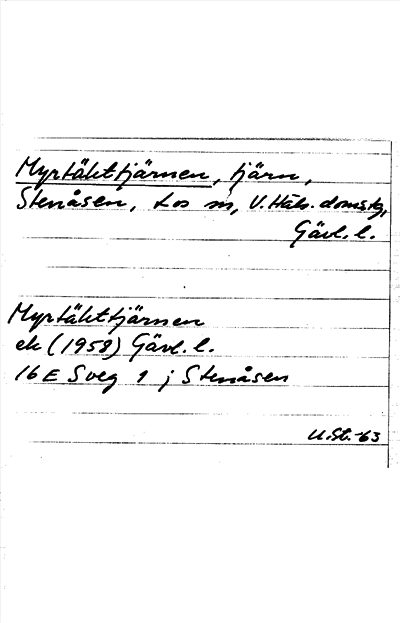 Myrtäkttjärnen, tjärn,
Stenåsen, Los sn, V. Häls. domsg,
Gävl. l.
Myrtäkttjärnen
ek (1958) Gävl. l.
16 E Sveg 1 j Stenåsen
U.St.-63